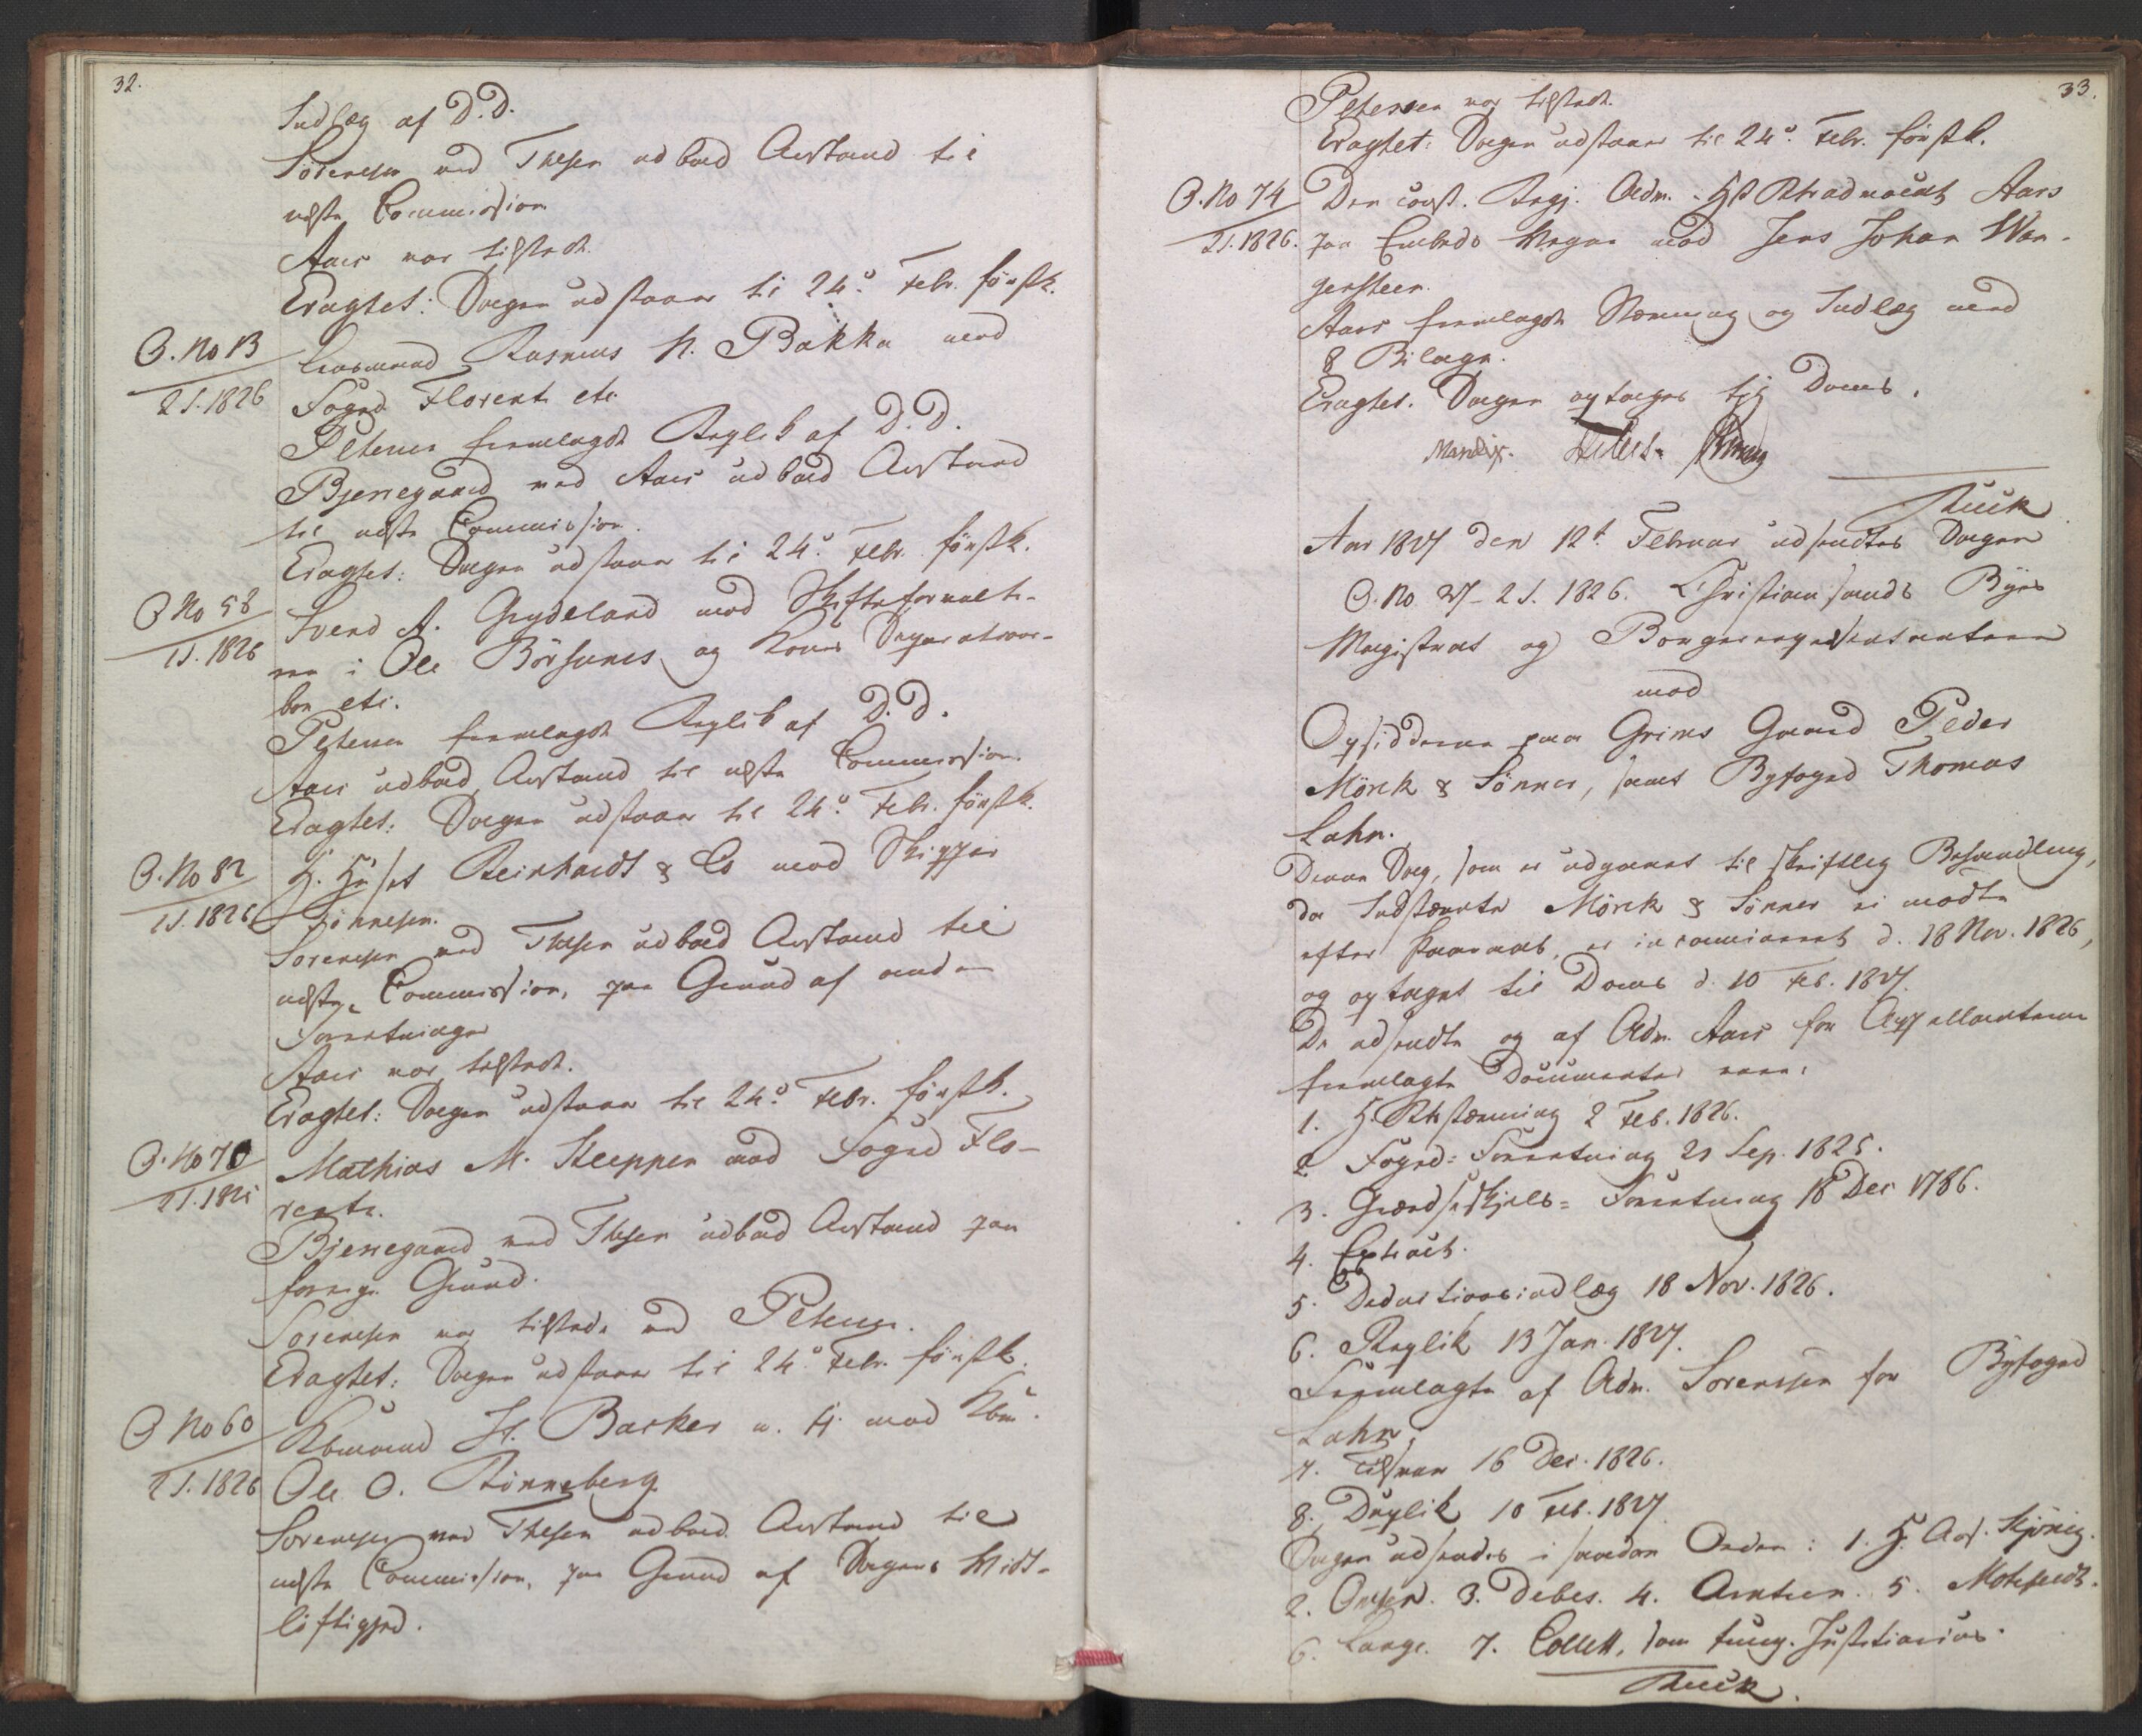 32.
Indlæg af D.D.
Sörensen ved Thesen udbad Anstand til
næste Commission
Aars var tilstede.
Eragtet: Sagen udstaaer til 24d. Febr. förstk.
O. No 13
2 S. 1826
Rasmus N. Bakka mod
Foged Florentz etc.
Petersen fremlagde Replik af D.D.
Bjerregaard ved Aars udbad Anstand
til næste Commission.
Eragtet: Sagen udstaaer til 24d. Febr. förstk.
O No 58
1 S. 1826
Svend A. Grydeland mod Skifteforvalte-
ren i Ole Börsunes og Kones
boe etc.
Petersen fremlagde Replik af D.D.
Aars udbad Anstand til næste Commission.
Eragtet: Sagen udstaaer til 24d. Febr. förstk.
O. No 82
1 S. 1826
H. Huset Reinhardt & Co mod Skipper
Tönnesen.
Sorensen ved Thesen udbad Anstand til
næste Commission, paa Grund af andre
Forretninger
Aars var tilstede.
Eragtet: Sagen udstaaer til 24d. Febr. förstk.
O. No 70
2 S. 1825
Mathias M. Skeppen mod Foged Flo-
rentz.
Bjerregaard ved Thesen udbad Anstand paa
forrige Grund.
Sorensen var tilstede ved Petersen.
Eragtet: Sagen udstaaer til 24d. Febr. förstk.
O No 60
2 S. 1826
Kbmand H. Barker u. H. mod Kbm.
Ole O. Rönneberg
Sorensen ved Thesen udbad Anstand til
næste Commission, paa Grund af Sagens Vidt-
löftighed.
33.
Petersen var tilstede.
Eragtet: Sagen udstaaer til 24d. Febr. förstk.
O. No 74
2 S. 1826.
Den const. Regj. Adv. HstRetsadvocat Aars
paa Embeds Vegne mod Jens Johan Wan-
gensteen.
Aars fremlagde Stævning og Indlæg med
8 Bilage.
Eragtet. Sagen optages til Doms.
Ruck
Aar 1827 den 12t Februar udsendtes Sagen
O. No 27 - 2 S. 1826. Christiansands Byes
Magistrat og Borgerrepræsentanterne
mod
Opsidderne paa Grims Gaard Peder
Mörck & Sönner, samt Byfoged Thomas
Lahn.
Denne Sag, som er udgaaet til skriftlig Behandling,
da Indstævnte Mörck & Sönner ei mödte
efter Paaraab, er incamineret d. 18 Nov. 1826,
og optaget til Doms d. 10 Feb. 1827.
De udsendte og af Adv. Aars for Appellanterne
fremlagte Documenter ere:
1. H.Rtsstævning 2 Feb. 1826.
2. Foged-Forretning 21 Sep. 1825.
3. Grændseskjels-Forretning 18 Dec 1786.
4. Extract.
5. Deductionsindlæg 18 Nov. 1826.
6. Replik 13 Jan. 1827.
Fremlagte af Adv. Sorenssen for Byfoged
Lahn:
7. Tilsvar 16 Dec. 1826.
8. Duplik 10 Feb. 1827
Sagen udsendes i saadan Orden: 1. H. Ass. Kjönig.
2. Omsen. 3. Debes. 4. Arntzen. 5. Motzfeldt.
6. Lange. 7. Collett, som fung. Justitiarius.
Ruck.